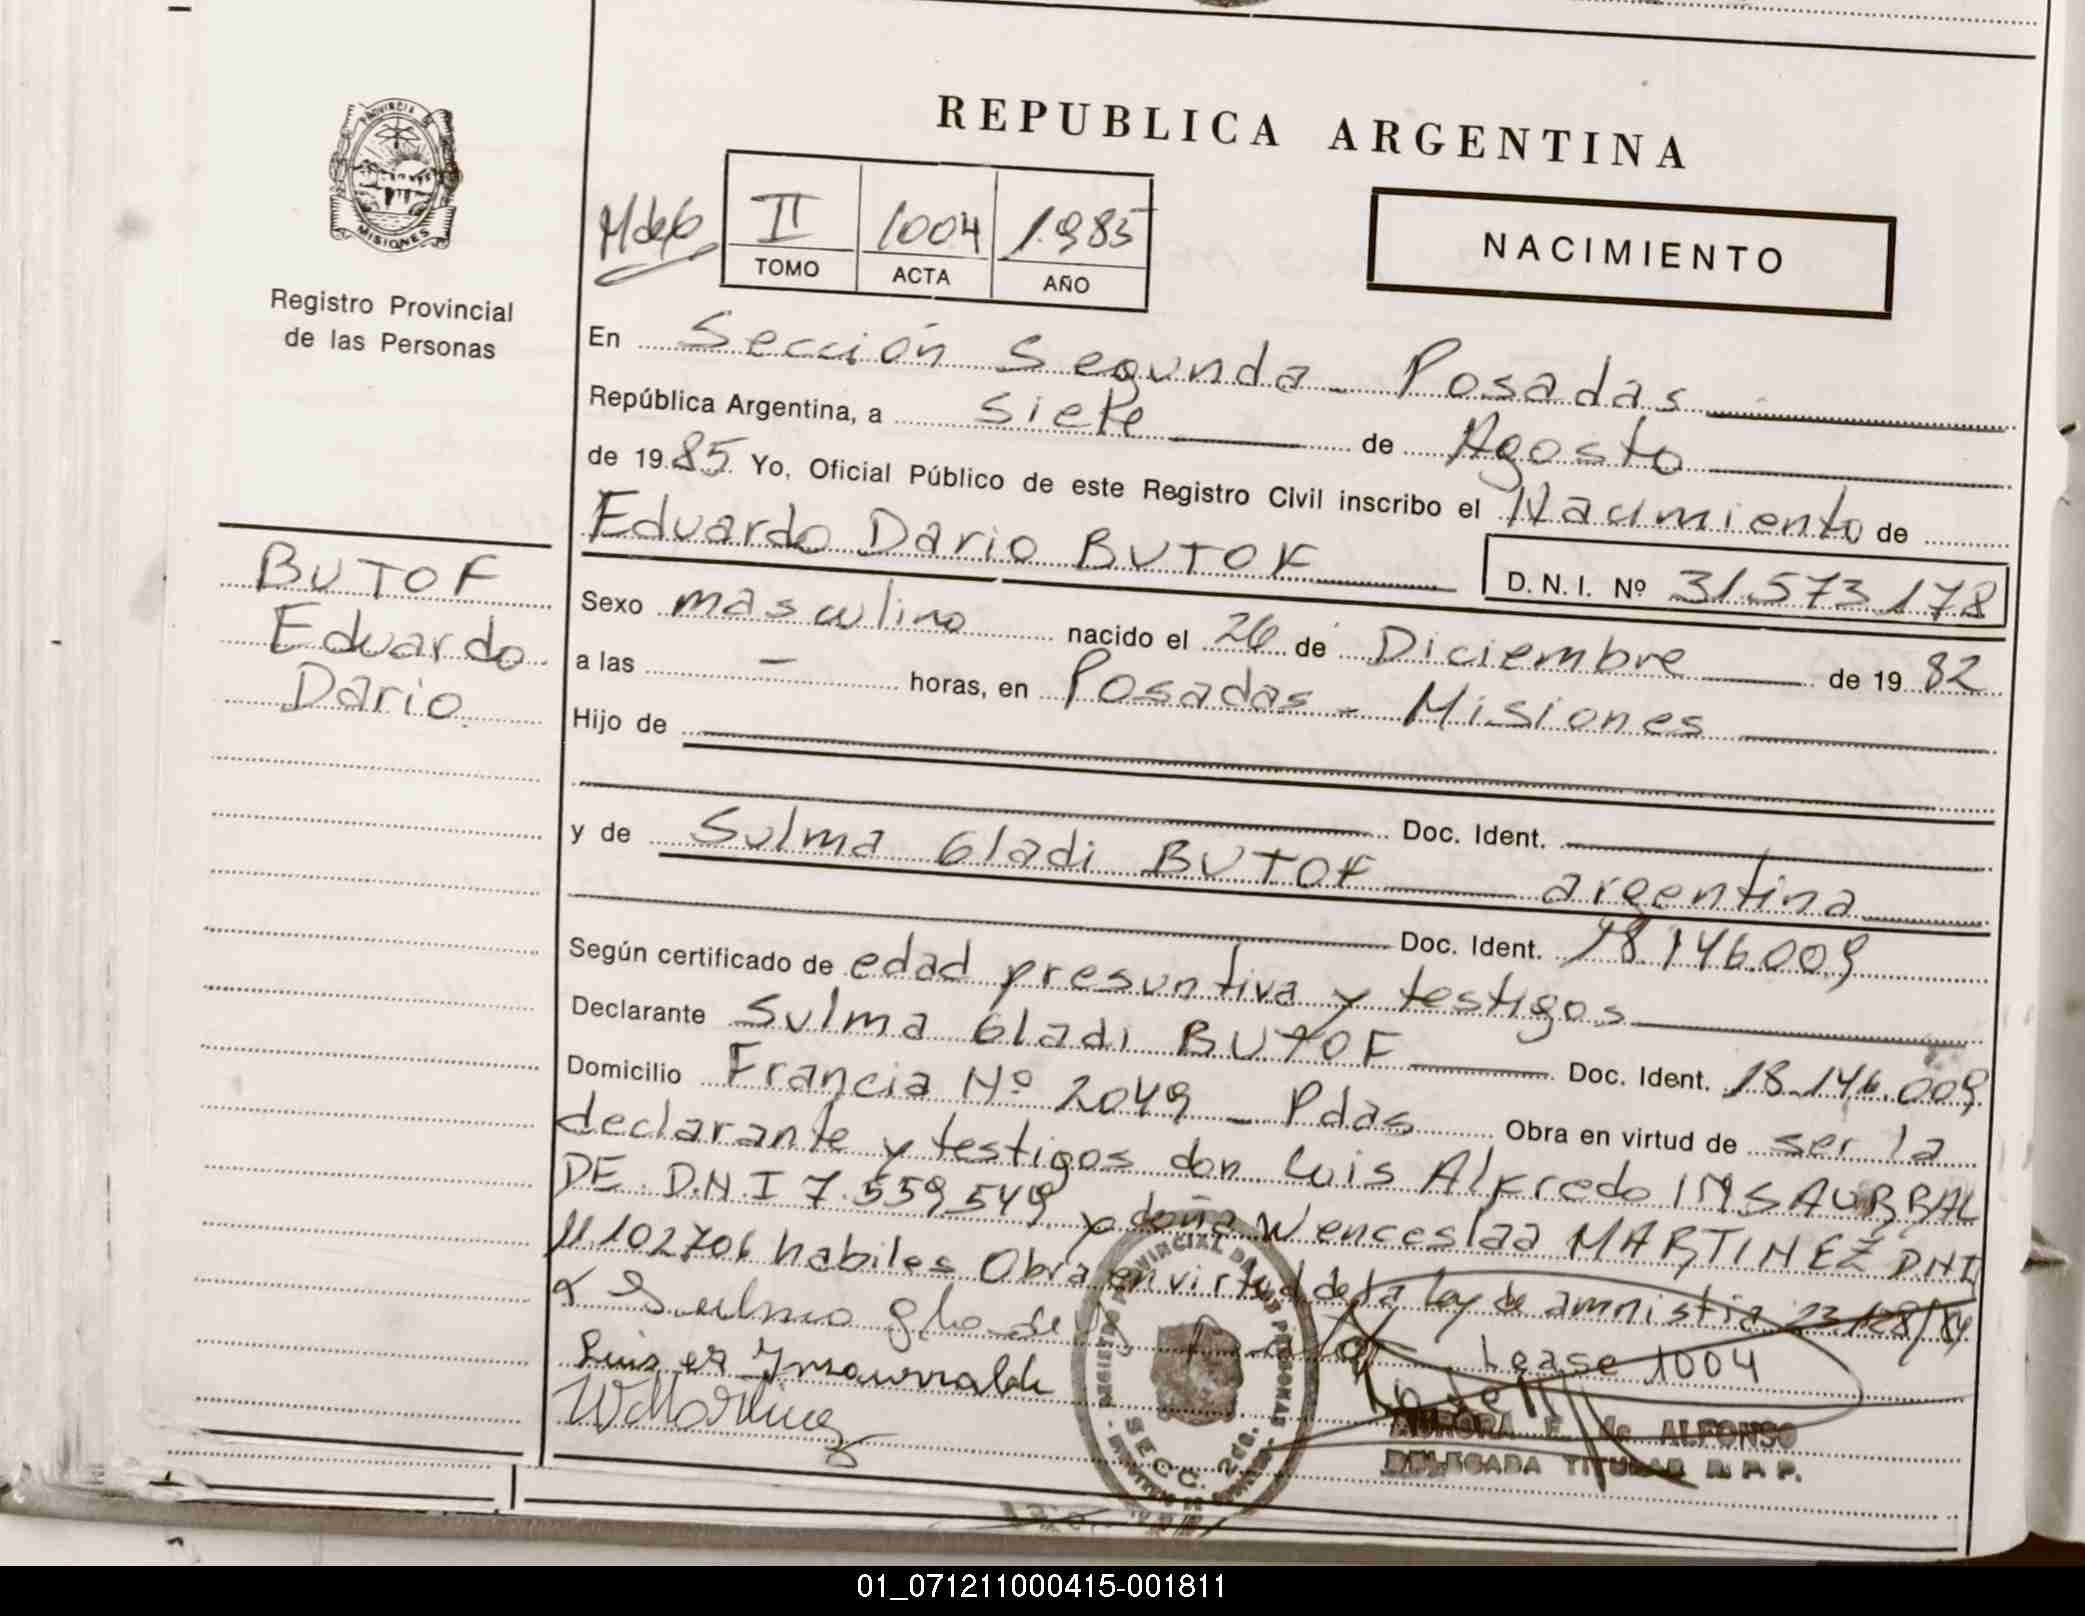 PROVINCIA DE
MISIONES
Registro Provincial
de las Personas
REPUBLICA ARGENTINA
II 1004 1.985
TOMO ACTA AÑO
NACIMIENTO
En Sección Segunda - Posadas
República Argentina, a Siete de Agosto
de 1985 Yo, Oficial Público de este Registro Civil inscribo el Nacimiento de
Eduardo Dario BUTOF
D.N.I. Nº 31.573.178
BUTOF
Eduardo
Dario.
Sexo masculino nacido el 26 de Diciembre de 1982
a las — horas, en Posadas - Misiones
Hijo de
Doc. Ident.
y de Sulma Gladi BUTOF argentina
Doc. Ident. 18.146.009
Según certificado de edad presuntiva y testigos
Declarante Sulma Gladi BUTOF Doc. Ident. 18.146.009
Domicilio Francia Nº 2049 - Pdas Obra en virtud de ser la
declarante y testigos don Luis Alfredo INSAURRAL
DE. D.N.I 7.559.549 y doña Wenceslaa MARTINEZ DNI
11.102706 habiles Obra en virtud de la ley de amnistia 23128/84
Lease 1004
Luis Insaurralde
WMartinez
REGISTRO PROVINCIAL DE LAS PERSONAS
SECC. 2da.
AURORA E. de ALFONSO
DELEGADA TITULAR R.P.P.
01_071211000415-001811